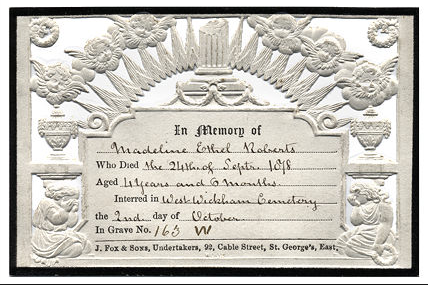 In Memory of
Madeline Ethel Roberts
Who Died the 24th of Septr.
Aged 4 Years and 6 Months.
Interred in West Wickham Cemetery
the 2nd. day of October.
In Grave No. 163 W
J. Fox & Sons, Undertakers, 92, Cable Street, St. George's, East.